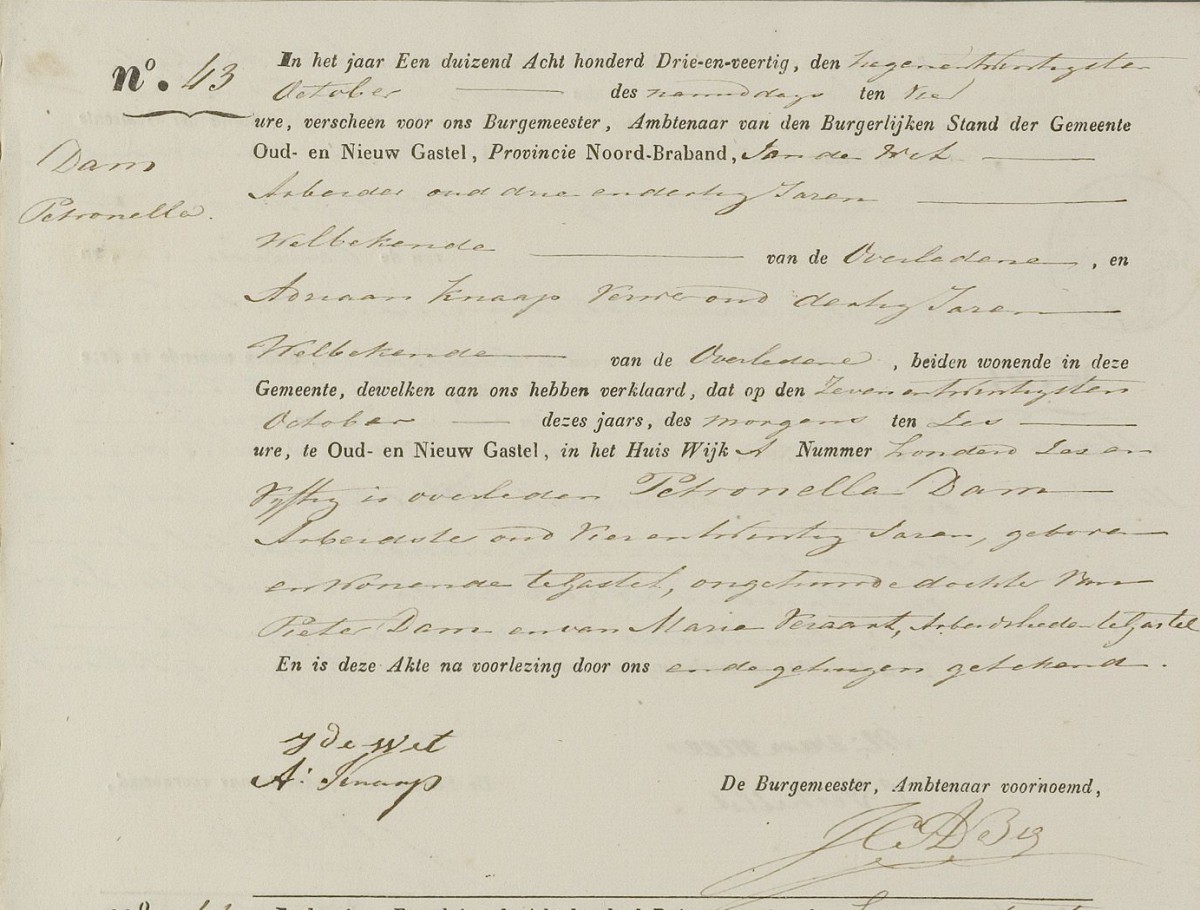 nº. 43
Dam
Petronella.
In het jaar Een duizend Acht honderd Drie-en-veertig, den Negenentwintigsten
October des namiddags ten Vier
ure, verscheen voor ons Burgemeester, Ambtenaar van den Burgerlijken Stand der Gemeente
Oud- en Nieuw Gastel, Provincie Noord-Braband, Jan de Wet
Arbeider oud drie en dertig Jaren
Welbekende van de Overledene, en
Adriaan Knaap Verwer oud dertig Jaren
Welbekende van de Overledene, beiden wonende in deze
Gemeente, dewelken aan ons hebben verklaard, dat op den Zevenentwintigsten
October dezes jaars, des morgens ten Zes
ure, te Oud- en Nieuw Gastel, in het Huis Wijk A Nummer honderd Zes en
Vyftig is overleden Petronella Dam
Arbeidster oud Vierentwintig Jaren, geboren
en Wonende te Gastel, ongehuwde dochter Van
Pieter Dam en van Maria Veraart, Arbeidslieden te Gastel
En is deze Akte na voorlezing door ons en de getuigen getekend.
J de Wet
A: Knaap
De Burgemeester, Ambtenaar voornoemd,